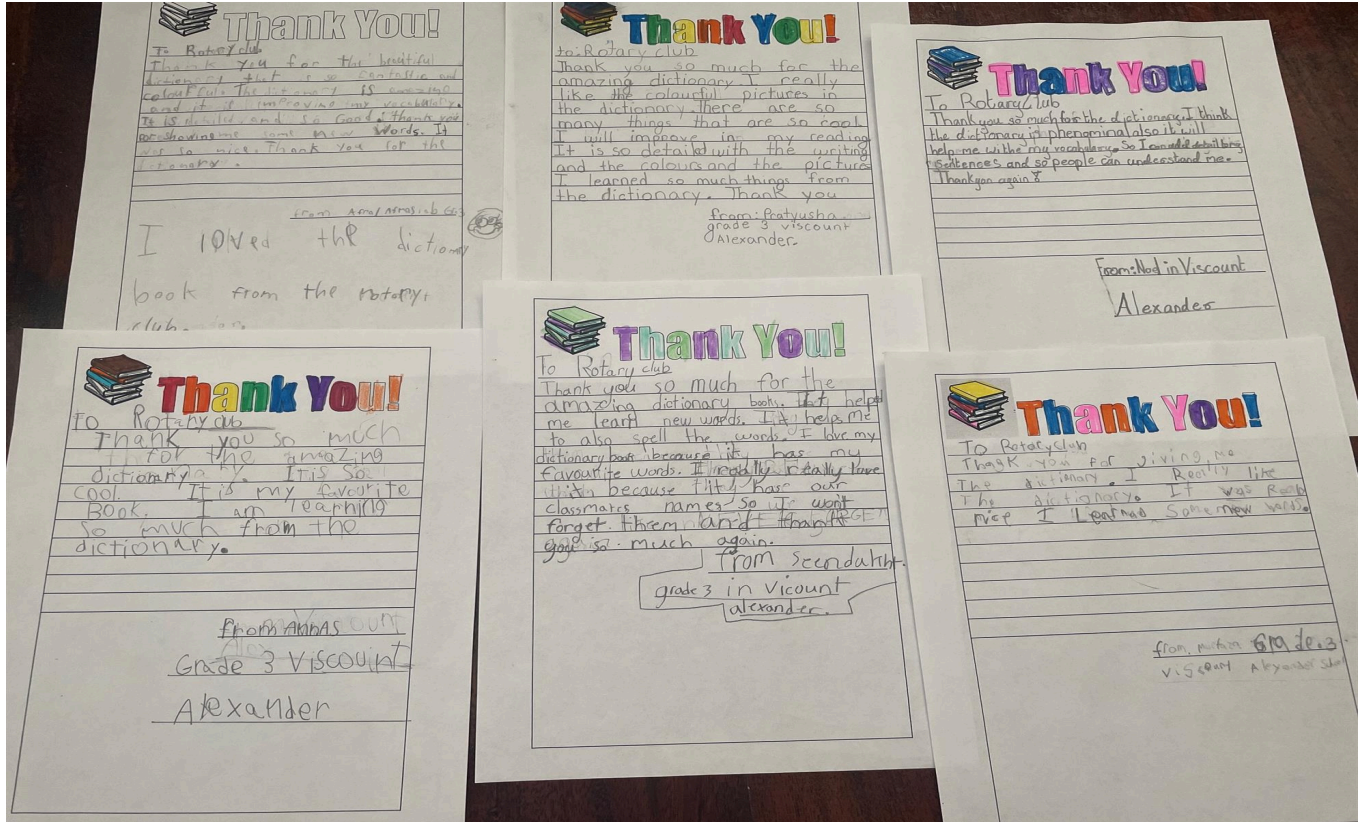 Thank You!
To Rotary club
Thank you for the beautiful
dictionary that is so fantastic and
colourful. The dictonary is awesome
and it is improving my vocabulary.
It is detailed and so Good. thank you
for showing me some new words. It
was so nice. Thank you for the
dictionary.
from
I loved the dictionary
book from the rotary
club.
Thank You!
to: Rotary club
Thank you so much for the
amazing dictionary I really
like the colourful pictures in
the dictionary. There are so
many things that are so cool
I will improve in my reading
It is so detaild with the writing
and the colours and the pictures
I learned so much things from
the dictionary. Thank you
from: Pratyusha
grade 3 viscount
Alexander.
Thank You!
To Rotary Club
Thank you so much for the dictionary. I think
the dictionary is phenominal also it will
help me withe my vocabulary. So I can add detail to my
sentences and so people can understand me.
Thank you again
From: Nod in Viscount
Alexander
Thank You!
To Rotary club
Thank you so much
for the amazing
dictionary. It is so
cool. It is my favourite
Book. I am learning
so much from the
dictionary.
from ANNAS
Grade 3 Viscount
Alexander
Thank You!
To Rotary club
Thank you so much for the
amazing dictionary book. It helps
me learn new words. It helps me
to also spell the words. I love my
dictionary book because it has my
favourite words. I really really love
it because it has our
classmates names so I wont
forget them and thank
you so much again.
from
grade 3 in Vicount
alexander.
Thank You!
To Rotary club
Thank you for giving me
The dictionary. I Really like
The dictionary. It was Really
nice I Learned Some new words.
from, Grade. 3